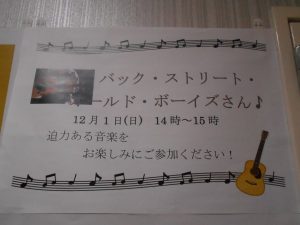 バック・ストリート・
ールド・ボーイズさん♪
12月1日(日) 14時～15時
迫力ある音楽を
お楽しみにご参加ください！